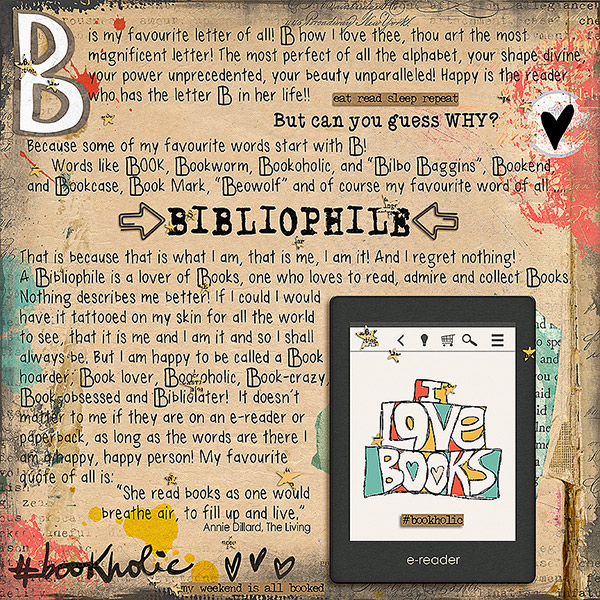 B is my favourite letter of all! B how I love thee, thou art the most
magnificent letter! The most perfect of all the alphabet, your shape divine,
your power unprecedented, your beauty unparalleled! Happy is the reader
who has the letter B in her life!!
eat read sleep repeat
But can you guess WHY?
Because some of my favourite words start with B!
Words like BOOK, Bookworm, Bookoholic, and "Bilbo Baggins", Bookend,
and Bookcase, Book Mark, "Beowolf" and of course my favourite word of all....
BIBLIOPHILE
That is because that is what I am, that is me, I am it! And I regret nothing!
A Bibliophile is a lover of Books, one who loves to read, admire and collect Books.
Nothing describes me better! If I could I would
have it tattooed on my skin for all the world
to see, that it is me and I am it and so I shall
always be. But I am happy to be called a Book
hoarder, Book lover, Bookoholic, Book-crazy,
Book-obsessed and Bibliolater! It doesn't
matter to me if they are on an e-reader or
paperback, as long as the words are there I
am a happy, happy person! My favourite
quote of all is:
"She read books as one would
breathe air, to fill up and live."
Annie Dillard, The Living
#bookholic
my weekend is all booked
I
LOVE
BOOKS
#bookholic
e-reader